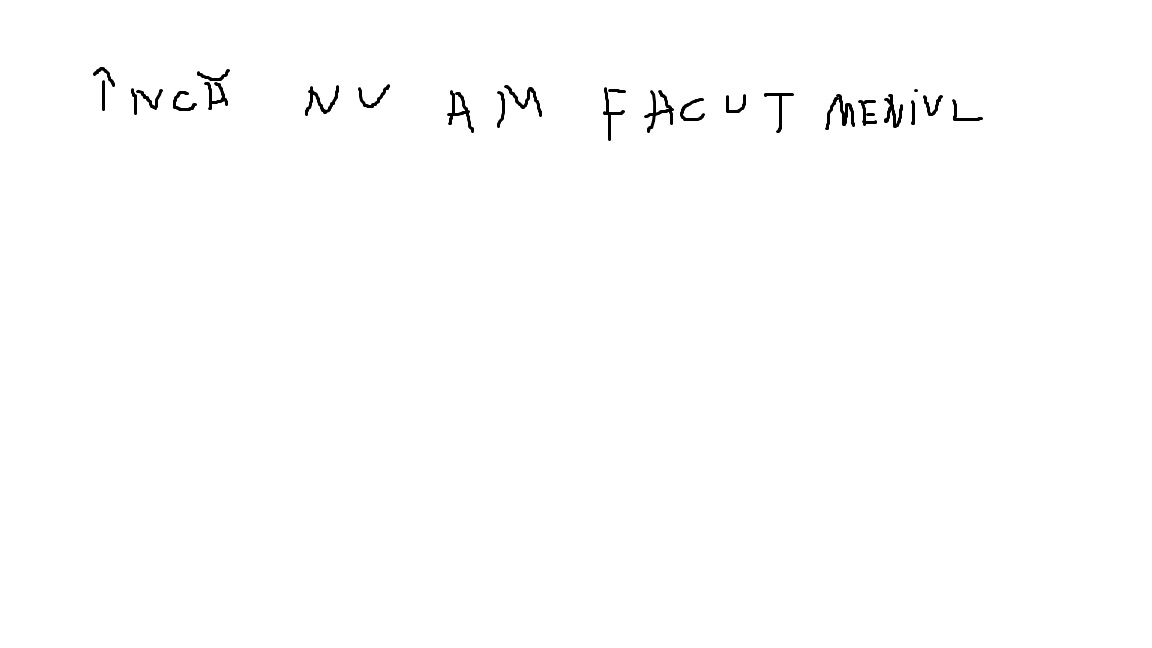 ÎNCĂ NU AM FACUT MENiUL